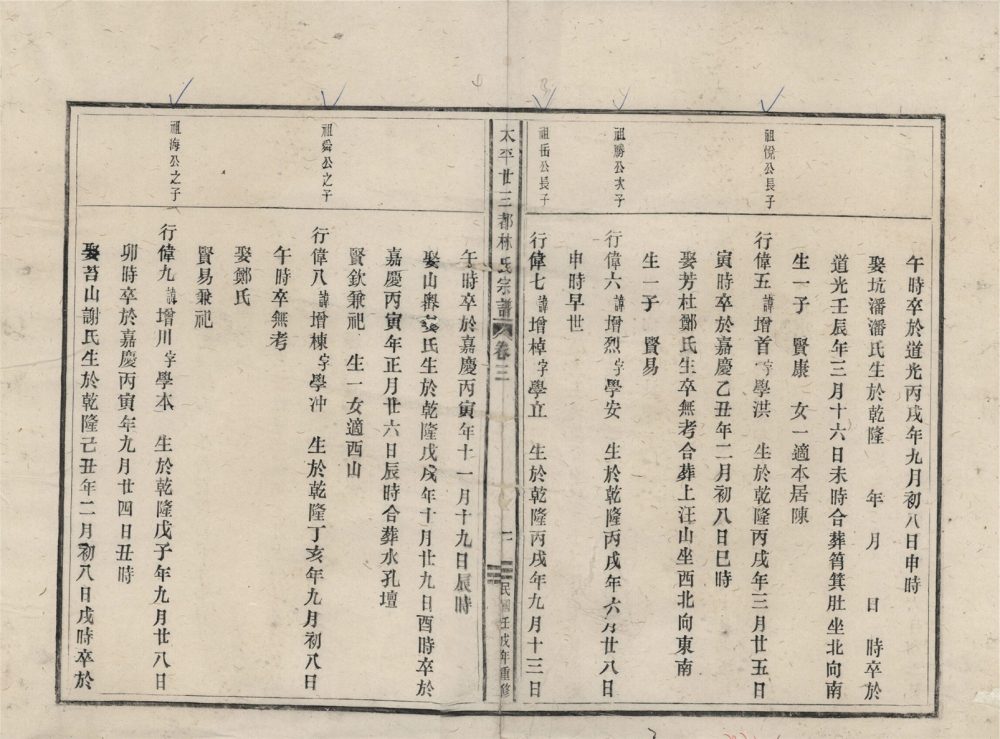 午時卒於道光丙戌年九月初八日申時
娶坑潘潘氏生於乾隆 年 月 日 時卒於
道光壬辰年三月十六日未時合葬筲箕肚坐北向南
生一子 賢康 女一適本居陳
祖悅公長子
行偉五諱增首字學洪 生於乾隆丙戌年三月廿五日
寅時卒於嘉慶乙丑年二月初八日巳時
娶芳杜鄭氏生卒無考合葬上汪山坐西北向東南
生一子 賢易
祖勝公次子
行偉六諱增烈字學安 生於乾隆丙戌年六月廿八日
申時早世
祖岳公長子
行偉七諱增棹字學立 生於乾隆丙戌年九月十三日
太平廿三都林氏宗譜 卷三
民國壬戌年重修
午時卒於嘉慶丙寅年十一月十九日辰時
娶山審 氏生於乾隆戊戌年十月廿九日酉時卒於
嘉慶丙寅年正月廿六日辰時合葬水孔壇
賢欽兼祀 生一女適西山
祖舜公之子
行偉八諱增棟字學沖 生於乾隆丁亥年九月初八日
午時卒無考
娶鄭氏
賢易兼祀
祖海公之子
行偉九諱增川字學本 生於乾隆戊子年九月廿八日
卯時卒於嘉慶丙寅年九月廿四日丑時
娶苔山謝氏生於乾隆己丑年二月初八日戌時卒於